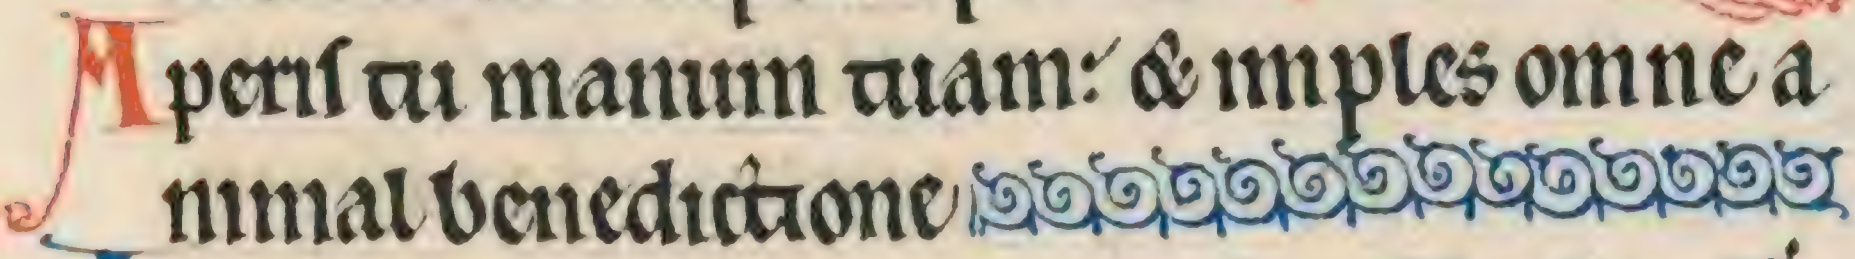 Aperiſ tu manum tuam: & imples omne a
nimal benedictione